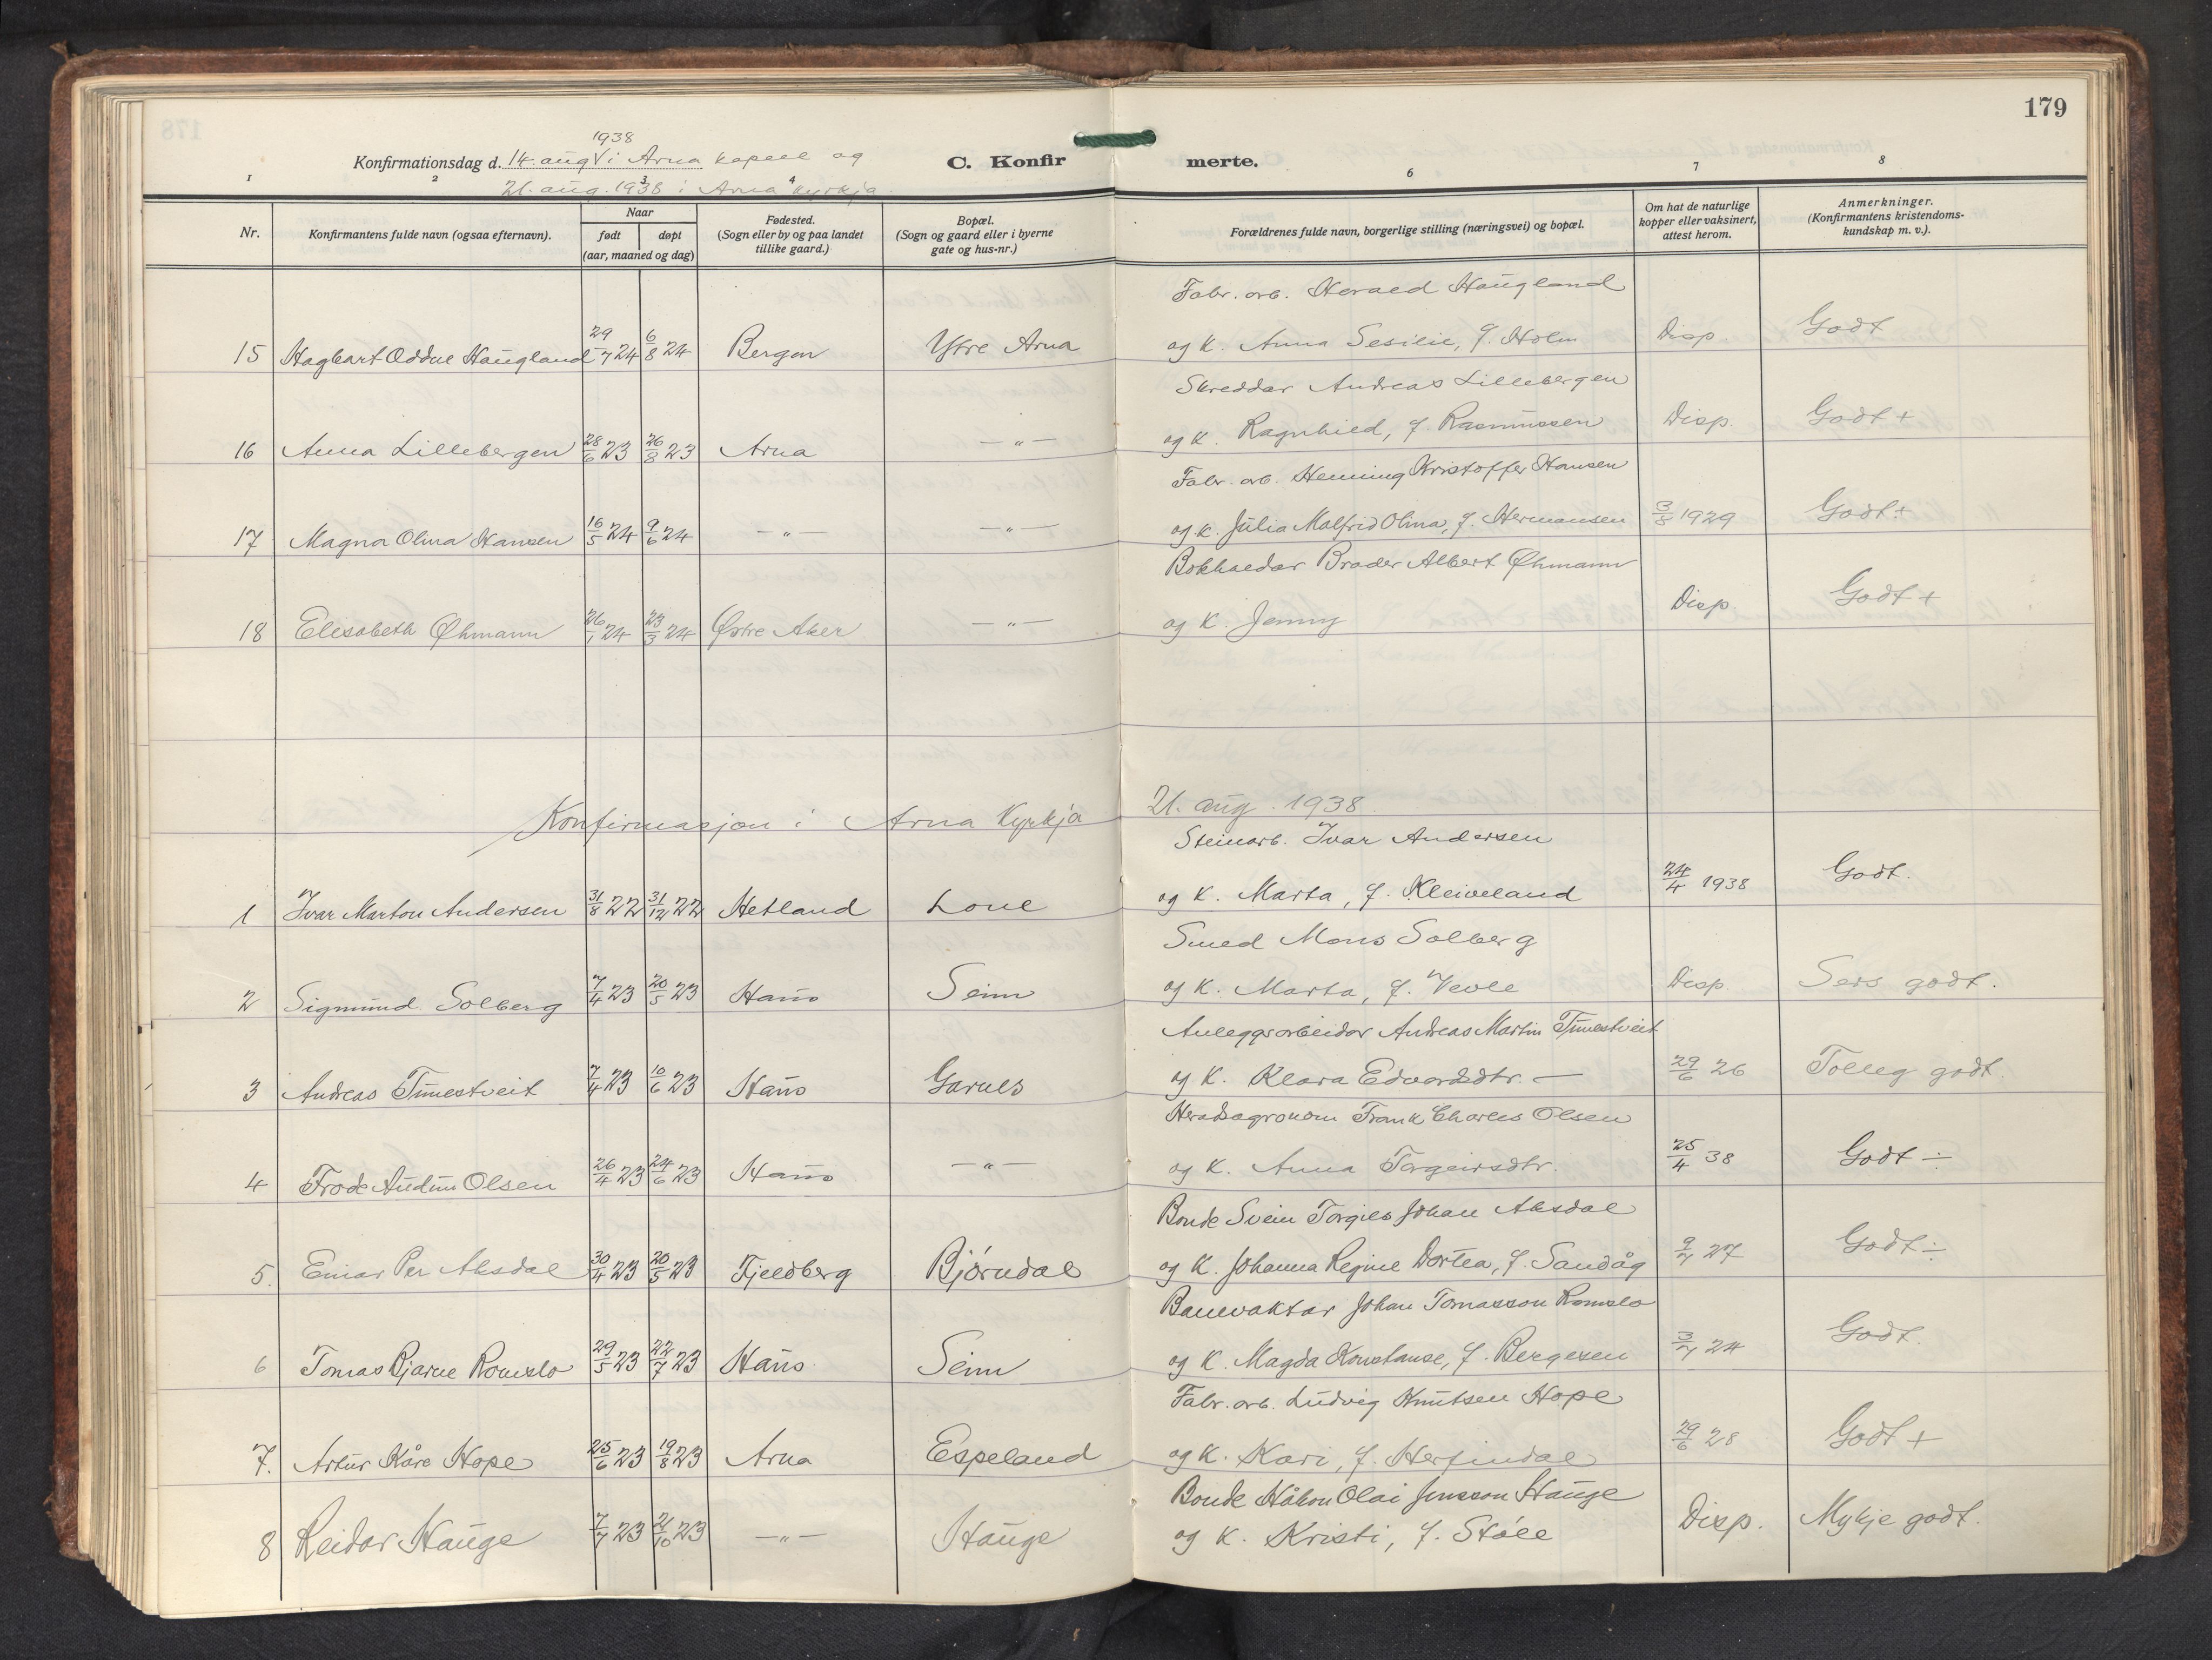 179
1938
Konfirmationsdag d. 14. aug. i Arna kapell og
21. aug. 1938 i Arna kyrkja.
C. Konfirmerte.
1 2 3 4 6 7 8
Nr. Konfirmantens fulde navn (ogsaa efternavn). Naar født døpt (aar, maaned og dag) Fødested. (Sogn eller by og paa landet tillike gaard.) Bopæl. (Sogn og gaard eller i byerne gate og hus-nr.) Forældrenes fulde navn, borgerlige stilling (næringsvei) og bopæl. Om hat de naturlige kopper eller vaksinert, attest herom. Anmerkninger. (Konfirmantens kristendomskundskap m. v.).
Fabr. arb. Harald Haugland
15 Hagbart Oddne Haugland 29/7 24 6/8 24 Bergen Ytre Arna og K. Anna Sesilie, f. Holm Disp. Godt
Skreddar Andreas Lillebergen
16 Anna Lillebergen 28/6 23 26/8 23 Arna —"— og K. Ragnhild, f. Rasmussen Disp. Godt +
Fabr. arb. Henning Kristoffer Hansen
17 Magna Olina Hansen 16/5 24 9/6 24 —"— —"— og K. Julia Malfrid Olina, f. Hermansen 3/8 1929 Godt +
Bokhaldar Brader Albert Øhmann
18 Elisabeth Øhmann 26/1 24 23/3 24 Østre Aker —"— og K. Jenny Disp. Godt +
Konfirmasjon i Arna Kyrkja 21. aug. 1938.
Steinarb. Ivar Andersen
1 Ivar Marton Andersen 31/8 22 31/12 22 Hetland Lone og K. Marta, f. Kleiveland 24/4 1938 Godt.
Smed Mons Solberg
2 Sigmund Solberg 7/4 23 20/5 23 Haus Seim og K. Marta, f. Vevle Disp. Sers godt.
Anleggsarbeidar Andreas Martin Tunestveit
3 Andreas Tunestveit 7/4 23 10/6 23 Haus Garnes og K. Klara Edvardsdtr. — 29/6 26 Tolleg godt.
Heradsagronom Frank Charles Olsen
4 Frode Audun Olsen 26/4 23 24/6 23 Haus —"— og K. Anna Torgeirsdtr. 25/4 38 Godt ÷
Bonde Svein Torgils Johan Aksdal
5. Einar Per Aksdal 30/4 23 20/5 23 Fjeldberg Bjørndal og K. Johanna Regine Dortea, f. Sandåg 9/7 27 Godt ÷
Banevaktar Johan Tomasson Romslo
6 Tomas Bjarne Romslo 29/5 23 22/7 23 Haus. Seim og K. Magda Konstanse, f. Bergesen 3/7 24 Godt.
Fabr. arb. Ludvig Knutsen Hope
7. Artur Kåre Hope 25/6 23 19/8 23 Arna Espeland og K. Kari, f. Herfindal 29/6 28 Godt +
Bonde Håkon Olai Jensson Hauge
8 Reidar Hauge 7/7 23 21/10 23 —"— Hauge og K. Kristi, f. Støle Disp. Mykje godt.